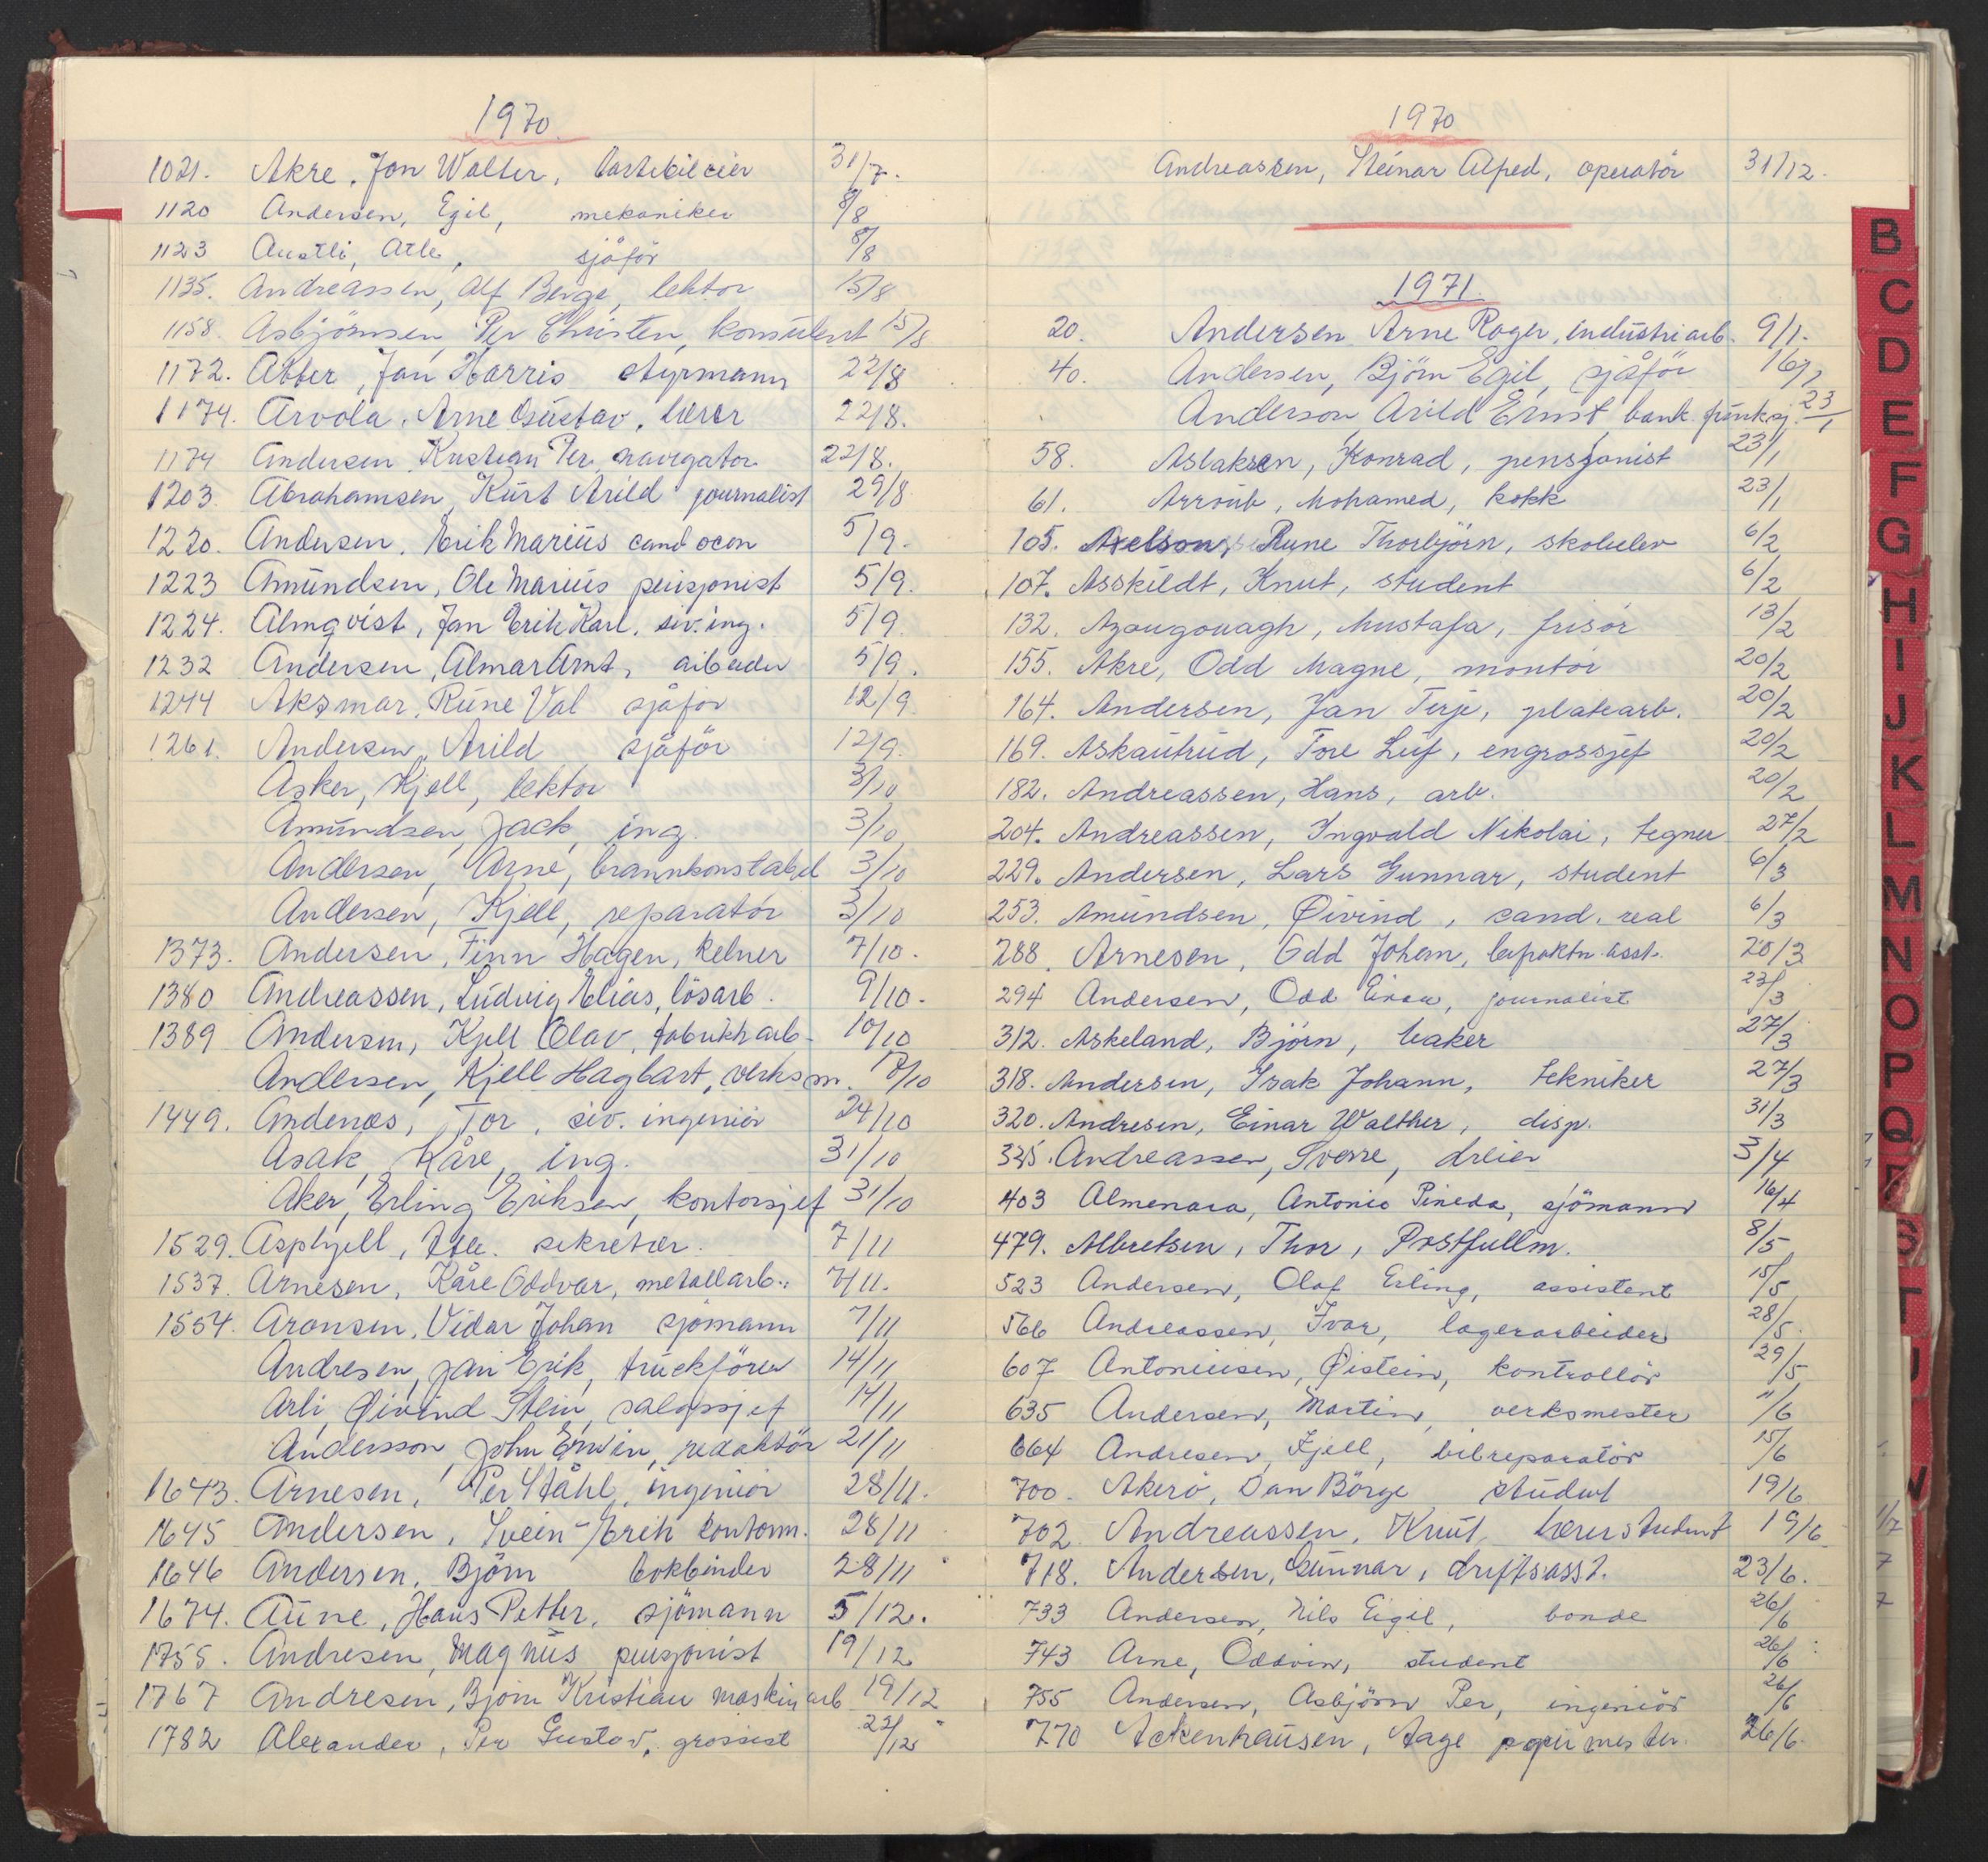 1970
1021. Akre, Jan Walter, lastebileier 31/7.
1120 Andersen, Egil, mekaniker 8/8
1123 Austli, Atle, sjåför 8/8
1135. Andreassen, Alf Berge, lektor 15/8
1158. Asbjörnsen, Per Christen, konsulent 15/8
1172. Atter, Jan Harris styrmann 22/8
1174. Arvola, Arne Gustav, lærer 22/8.
1174 Andersen, Kristian Per, navigatör 22/8.
1203 Abrahamsen, Kurt Arild journalist 29/8
1220. Andersen, Erik Marius cand oecon 5/9.
1223 Amundsen, Ole Marius pensjonist 5/9.
1224. Almqvist, Jan Erik Karl, siv.ing. 5/9
1232 Andersen, Almar Arnt, arbeider 5/9.
1244 Aksmar, Rune Val sjåför 12/9
1261. Andersen, Arild sjåför 12/9.
Asker, Kjell, lektor 3/10
Amundsen, Jack, ing. 3/10
Andersen, Arne, brannkonstabel 3/10
Andersen, Kjell, reparatör 3/10
1373. Andersen, Finn Hagen, kelner 7/10.
1380 Andreassen, Ludvig Elias, lösarb. 9/10.
1389 Andersen, Kjell Olav, fabrikkarb. 10/10
Andersen, Kjell Hagbart, verksm. /10
1449. Andenæs, Tor, siv. ingeniör 24/10
Asak, Kåre, ing. 31/10
Aker, Erling Eriksen, kontorsjef 31/10
1529. Asphjell, Atle. sekretær. 7/11
1537. Arnesen, Kåre Oddvar, metallarb. 7/11.
1554. Aronsen, Vidar Johan sjömann 7/11
Andresen, Jan Erik, truckförer 14/11
Arli, Øivind Stein, salgssjef 14/11
Andersson, John Erwin, redaktör 21/11
1643. Arnesen, Per Ståhl, ingeniör 28/11.
1645 Andersen, Svein-Erik kontorm. 28/11
1646 Andersen, Björn bokbinder 28/11
1674. Aune, Hans Petter, sjömann 5/12.
1755. Andresen, Magnus pensjonist 19/12
1767 Andresen, Björn Kristian maskinarb 19/12
1782 Alexander, Per Gustav, grossist 22/12
1970
Andreassen, Steinar Alfred, operatör 31/12.
1971.
20. Andersen Arne Roger, industriarb. 9/1.
40. Andersen, Björn Egil, sjåför 16/1
Anderson, Arild Ernst, bankfunksj. 23/1
58. Aslaksen, Konrad, pensjonist 23/1
61. Arroub, Mohamed, kokk 23/1
105. Axelson, Rune Thorbjörn, skoleelev 6/2
107. Asskildt, Knut, student 6/2
132. Azougouagh, Mustafa, frisör 13/2
155. Akre, Odd Magne, montör 20/2
164. Andersen, Jan Terje, platearb. 20/2
169. Askautrud, Tore Leif, engrossjef 20/2
182. Andreassen, Hans, arb. 20/2
204. Andreassen, Ingvald Nikolai, tegner 27/2
229. Andersen, Lars Gunnar, student 6/3
253. Amundsen, Øivind, cand. real 6/3
288. Arnesen, Odd Johan, asst. 20/3
294 Andersen, Odd Einar, journalist 23/3
312. Askeland, Björn, baker 27/3
318. Andersen, Isak Johann, tekniker 27/3
320. Andresen, Einar Walther, disp. 31/3
335. Andreassen, Sverre, dreier 3/4
403 Almenara, Antonio Pineda, sjömann 16/4
479. Albretsen, Thor, Postfullm. 8/5
523 Andersen, Olaf Erling, assistent 15/5
566 Andreassen, Ivar, lagerarbeider 28/5.
607 Antoniusen, Øistein, kontrollör 29/5
635 Andersen, Martin, verksmester 11/6
664 Andresen, Kjell, bilreparatör 15/6
700. Akerö, Dan Börge student 19/6
702 Andreassen, Knut, lærerstudent 19/6
718. Andersen, Gunnar, driftsasst. 23/6.
733 Andersen, Nils Eigil, bonde 26/6
743 Arne, Oddvin, student 26/6
755 Andersen, Asbjörn Per, ingeniör 26/6
770 Ackenhausen, Aage papirmester. 26/6
B
C
D
E
F
G
H
I
J
K
L
M
N
O
P
Q
S
T